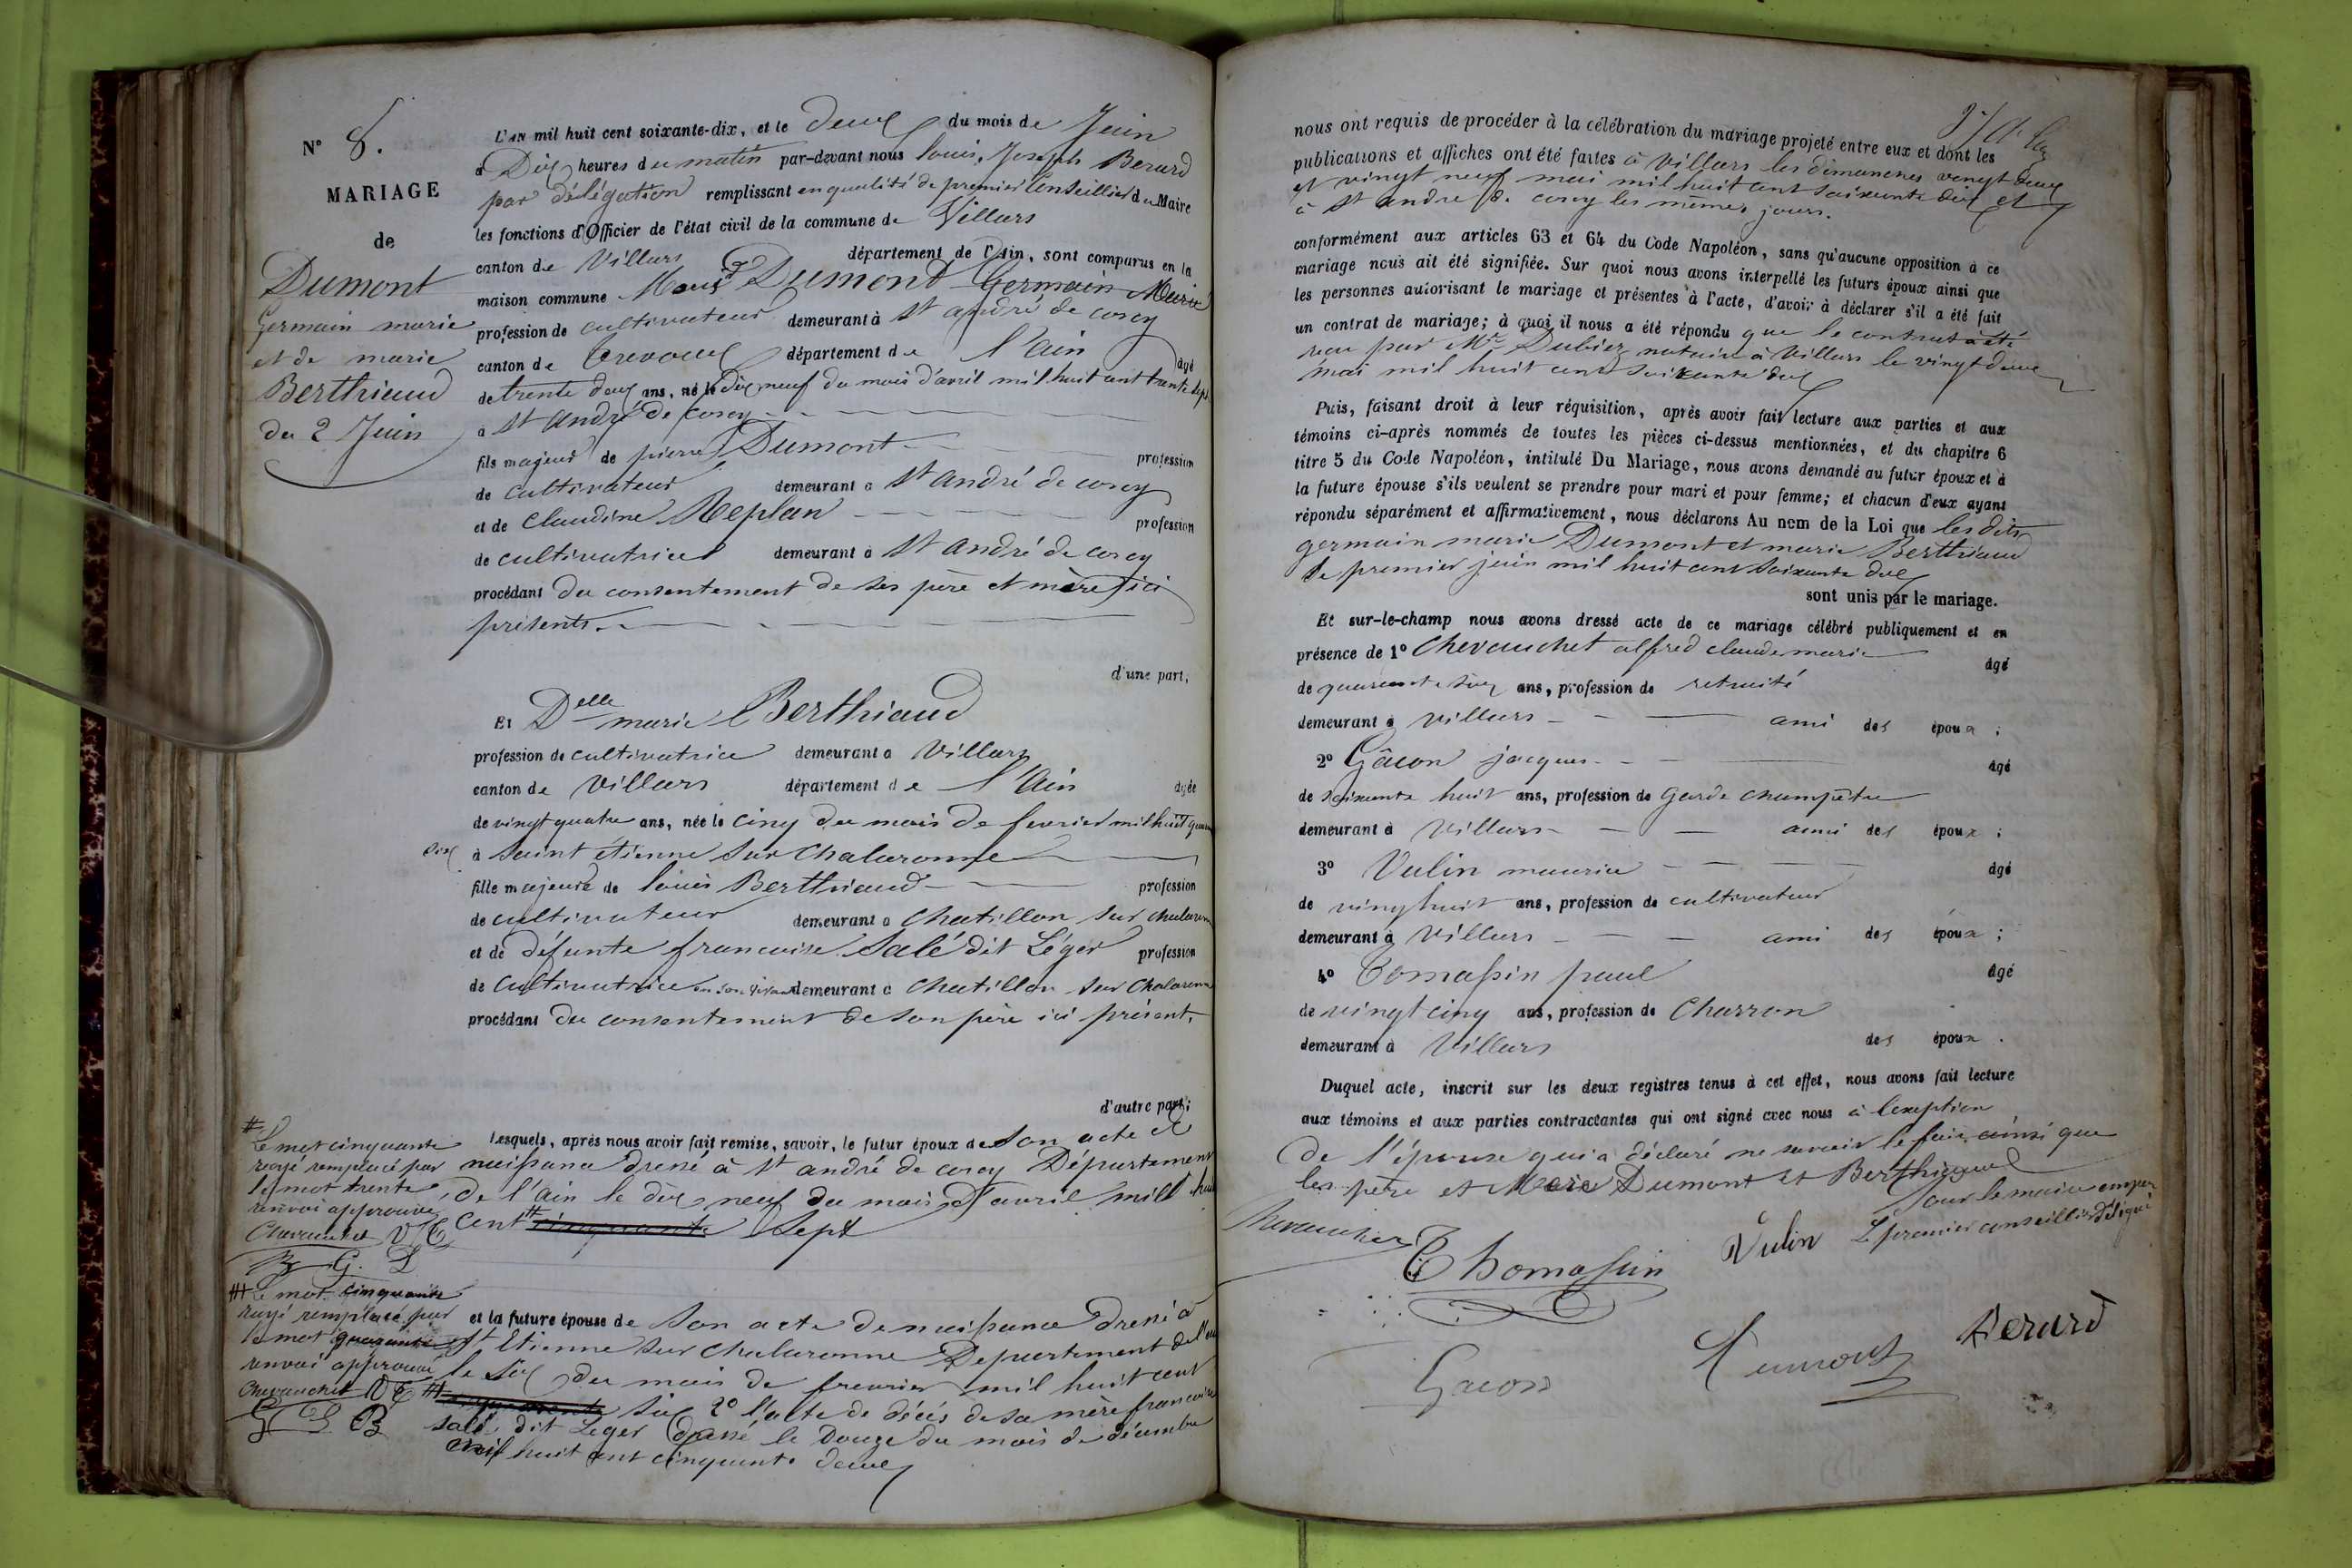 N° 8.
MARIAGE
de
Dumont
Germain marie
et de marie
Berthiaud
du 2 Juin
L'AN mil huit cent soixante-dix, et le deux du mois de Juin
à Dix heures du matin par-devant nous louis, Joseph Berard
par délégation remplissant en qualité de premier Conseillier du Maire
les fonctions d'Officier de l'état civil de la commune de Villars
canton de Villars département de l'Ain, sont comparus en la
maison commune Dumont Germain Marie
profession de cultivateur demeurant à St andré de corcy
canton de trevoux département de l'ain âgé
de trente deux ans, né le dix neuf du mois d'avril mil huit cent trente sept
à St andré de corcy
fils majeur de pierre Dumont profession
de cultivateur demeurant à St andré de corcy
et de claudine Replan profession
de cultivatrice demeurant à St andré de corcy
procédant du consentement de ses père et mère ici
présents.
d'une part,
Et Delle marie Berthiaud
profession de cultivatrice demeurant à Villars
canton de Villars département de l'Ain âgée
de vingt quatre ans, née le cinq du mois de fevrier mil huit
six à Saint étienne sur chalaronne
fille majeure de louis Berthiaud profession
de cultivateur demeurant à chatillon sur chalaronne
et de défunte francoise Salé dit Léger profession
de cultivatrice en son vivant demeurant à chatillon sur chalaronne
procédant du consentement de son père ici présent,
d'autre part;
Lesquels, après nous avoir fait remise, savoir, le futur époux de son acte de
naissance dressé à St andré de corcy Département
de l'ain le dix neuf du mois d'avril mill huit
cent # cinquante Sept
# Le mot cinquante
rayé remplacé par
le mot trente
renvoi approuvé
Chevauchet V T
B G. D
et la future épouse de son acte de naissance dressé à
St Etienne sur chalaronne Departement de l'ain
le six du mois de frevrier mil huit cent
six 2° l'acte de décès de sa mère francoise
salé dit Leger dressé le Douze du mois de décembre
mil huit cent cinquante deux
## Le mot cinquante
rayé remplacé par
le mot quarante
renvoi approuvé
Chevauchet V T
G D B
nous ont requis de procéder à la célébration du mariage projeté entre eux et dont les
publications et affiches ont été faites à Villars les dimanches vingt deux
et vingt neuf mai mil huit cent soixante dix et
à St andre de corcy les mêmes jours.
conformément aux articles 63 et 64 du Code Napoléon, sans qu'aucune opposition à ce
mariage nous ait été signifiée. Sur quoi nous avons interpellé les futurs époux ainsi que
les personnes autorisant le mariage et présentes à l'acte, d'avoir à déclarer s'il a été fait
un contrat de mariage; à quoi il nous a été répondu que le contrat a été
reçu par Me Dubiez notaire à Villars le vingt deux
mai mil huit cent soixante dix
Puis, faisant droit à leur réquisition, après avoir fait lecture aux parties et aux
témoins ci-après nommés de toutes les pièces ci-dessus mentionnées, et du chapitre 6
titre 5 du Code Napoléon, intitulé Du Mariage, nous avons demandé au futur époux et à
la future épouse s'ils veulent se prendre pour mari et pour femme; et chacun d'eux ayant
répondu séparément et affirmativement, nous déclarons Au nom de la Loi que les dits
germain marie Dumont et marie Berthiaud
le premier juin mil huit cent soixante dix
sont unis par le mariage.
Et sur-le-champ nous avons dressé acte de ce mariage célébré publiquement et en
présence de 1° Chevauchet alfred claude marie âgé
de quarante six ans, profession de retraité
demeurant à Villars ami des époux ;
2° Gâcon jacques âgé
de soixante huit ans, profession de garde champêtre
demeurant à Villars ami des époux ;
3° Vulin maurice âgé
de vingt huit ans, profession de cultivateur
demeurant à Villars ami des époux ;
4° Tomassin paul âgé
de vingt cinq ans, profession de charron
demeurant à Villars des époux .
Duquel acte, inscrit sur les deux registres tenus à cet effet, nous avons fait lecture
aux témoins et aux parties contractantes qui ont signé avec nous à lexeption
De l'épouse qui a déclaré ne savoir le faire, ainsi que
les père et Mère Dumont et Berthiaud
pour le maire
Le premier conseillier Délégué
Chevauchet
Thomassin
Vulin
Gacon
Dumont
Berard